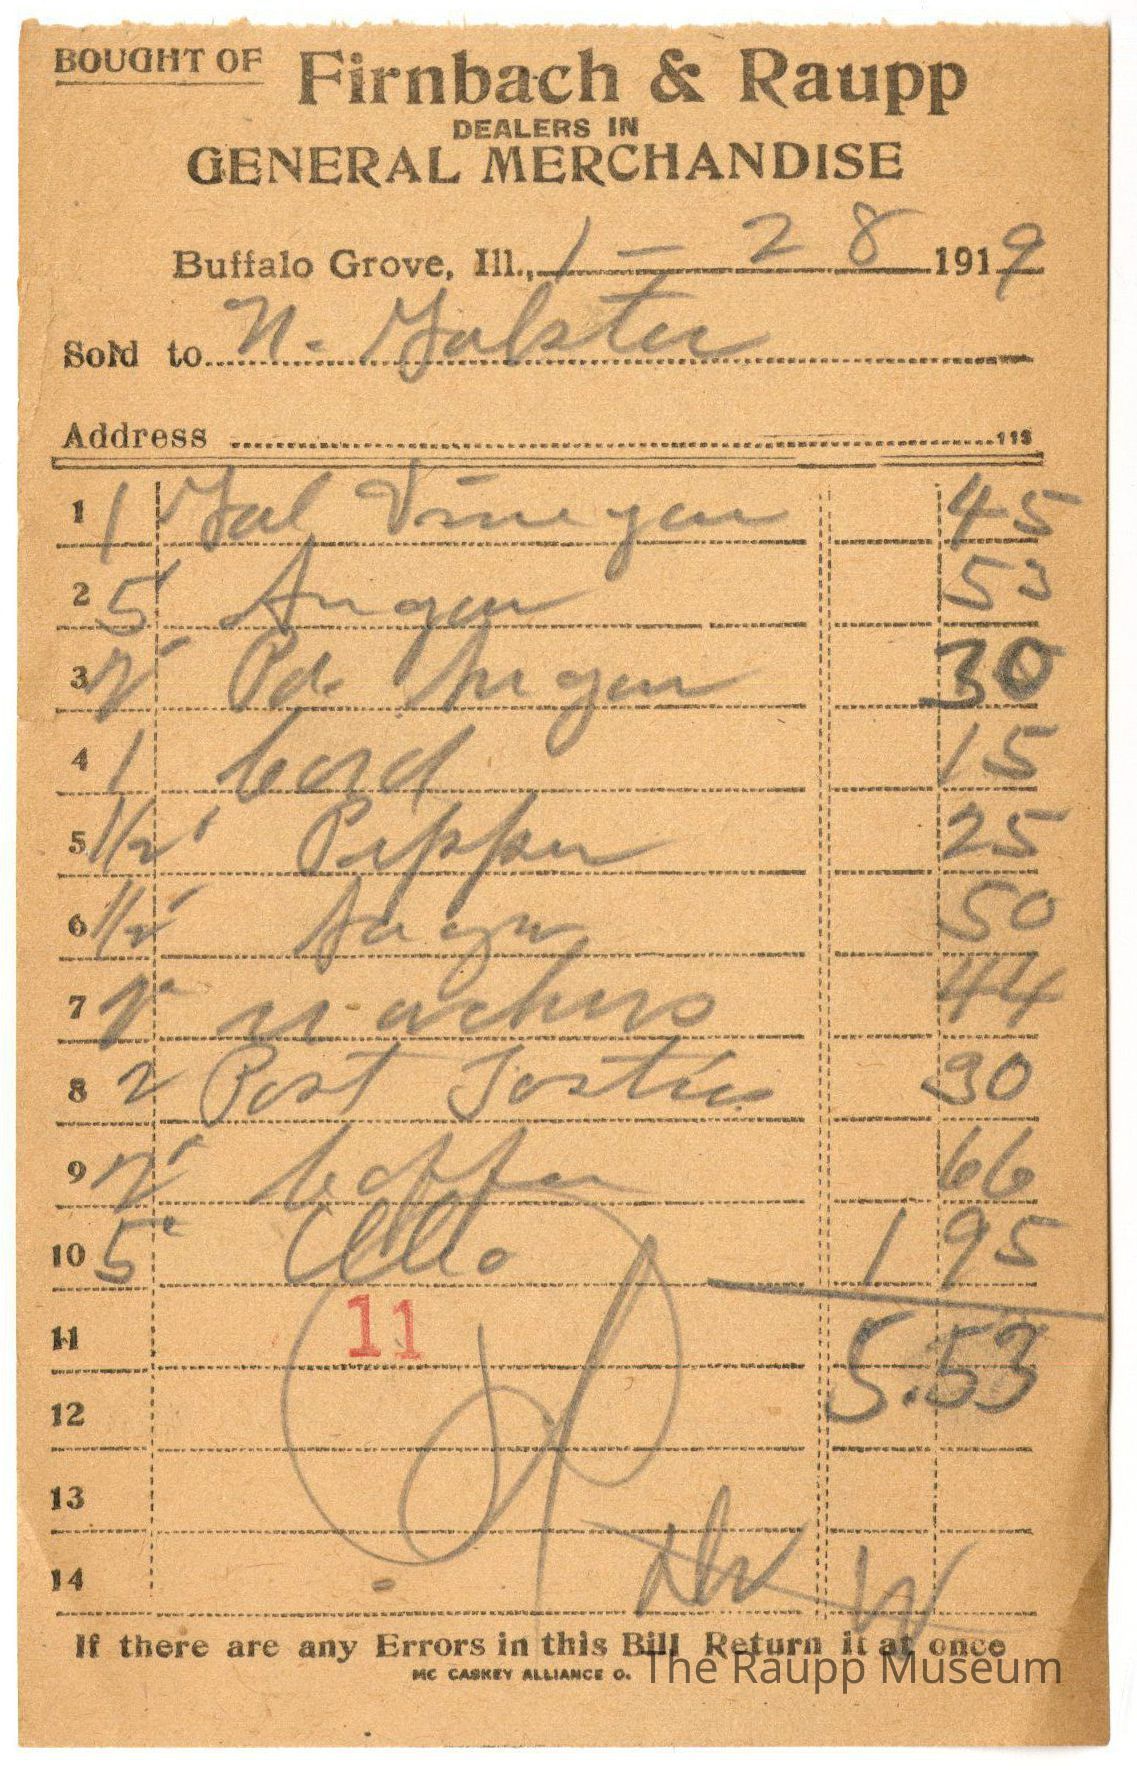 BOUGHT OF Firnbach & Raupp
DEALERS IN
GENERAL MERCHANDISE
Buffalo Grove, Ill., 1 - 28 1919
Sold to N.
Address 115
1 1 Gal Vinegar 45
2 5 Sugar 53
3 2 Pd. Sugar 30
4 1 Cord 15
5 1/2 Pepper 25
6 1/2 50
7 2 44
8 2 Post Tosties 30
9 2 Coffee 66
10 5 1 95
11 11 5.53
12
13
14
If there are any Errors in this Bill Return it at once
MC CASKEY ALLIANCE O.
The Raupp Museum